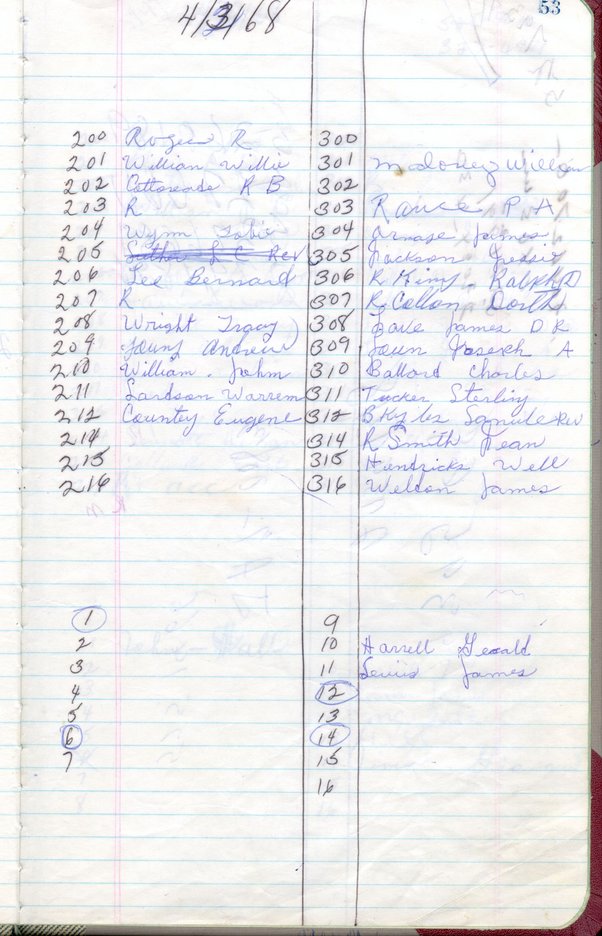 4/3/68
53
200 Rogers R 300
201 Willian Willie 301 Maloney William
202 R B 302
203 R 303 Rance P A
204 Wynn 304 James
205 L C Rev 305 Jackson Jessie
206 Lee Bernard 306 R King. Ralph D
207 R 307 R Dorth
208 Wright Tracy 308 James D R
209 Young Andrew 309 Joseph A
210 William. John 310 Ballard Charles
211 Lardson Warren 311 Tucker Sterling
212 Country Eugene 312 B Kyles Samule Rev
214 314 R Smith Jean
215 315 Hendricks Well
216 316 Weldon James
1 9
2 10 Harrell Gerald
3 11 Lewis James
4 12
5 13
6 14
7 15
16